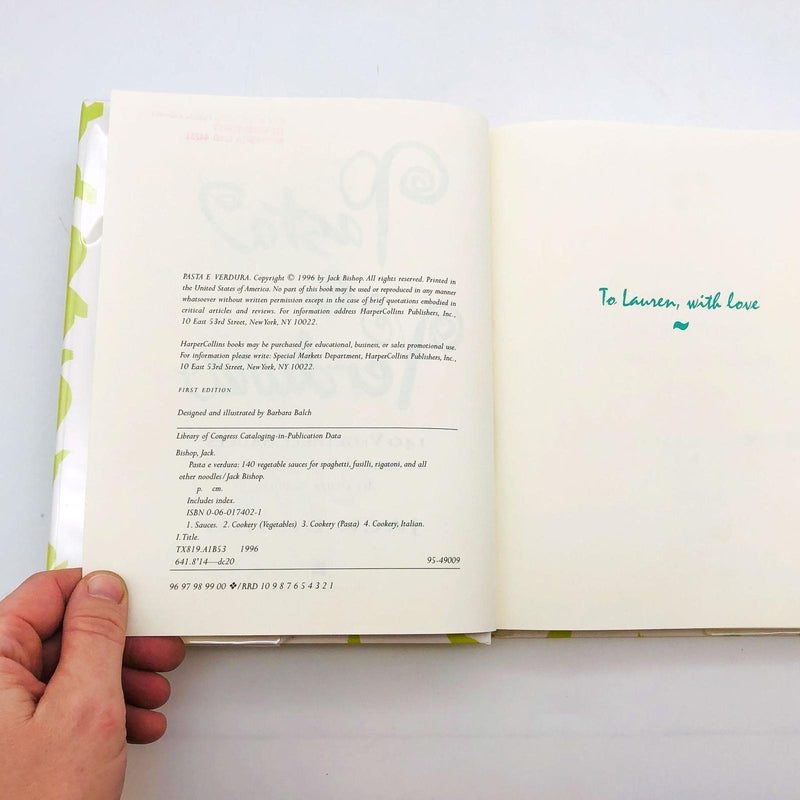 PASTA E VERDURA. Copyright © 1996 by Jack Bishop. All rights reserved. Printed in
the United States of America. No part of this book may be used or reproduced in any manner
whatsoever without written permission except in the case of brief quotations embodied in
critical articles and reviews. For information address HarperCollins Publishers, Inc.,
10 East 53rd Street, NewYork, NY 10022.
HarperCollins books may be purchased for educational, business, or sales promotional use.
For information please write: Special Markets Department, HarperCollins Publishers, Inc.,
10 East 53rd Street, NewYork, NY 10022.
FIRST EDITION
Designed and illustrated by Barbara Balch
Library of Congress Cataloging-in-Publication Data
Bishop, Jack.
Pasta e verdura: 140 vegetable sauces for spaghetti, fusilli, rigatoni, and all
other noodles / Jack Bishop.
p. cm.
Includes index.
ISBN 0-06-017402-1
1. Sauces. 2. Cookery (Vegetables) 3. Cookery (Pasta) 4. Cookery, Italian.
I. Title.
TX819.A1B53 1996
641.8'14—dc20 95-49009
96 97 98 99 00 ❖/RRD 10 9 8 7 6 5 4 3 2 1
To Lauren, with love